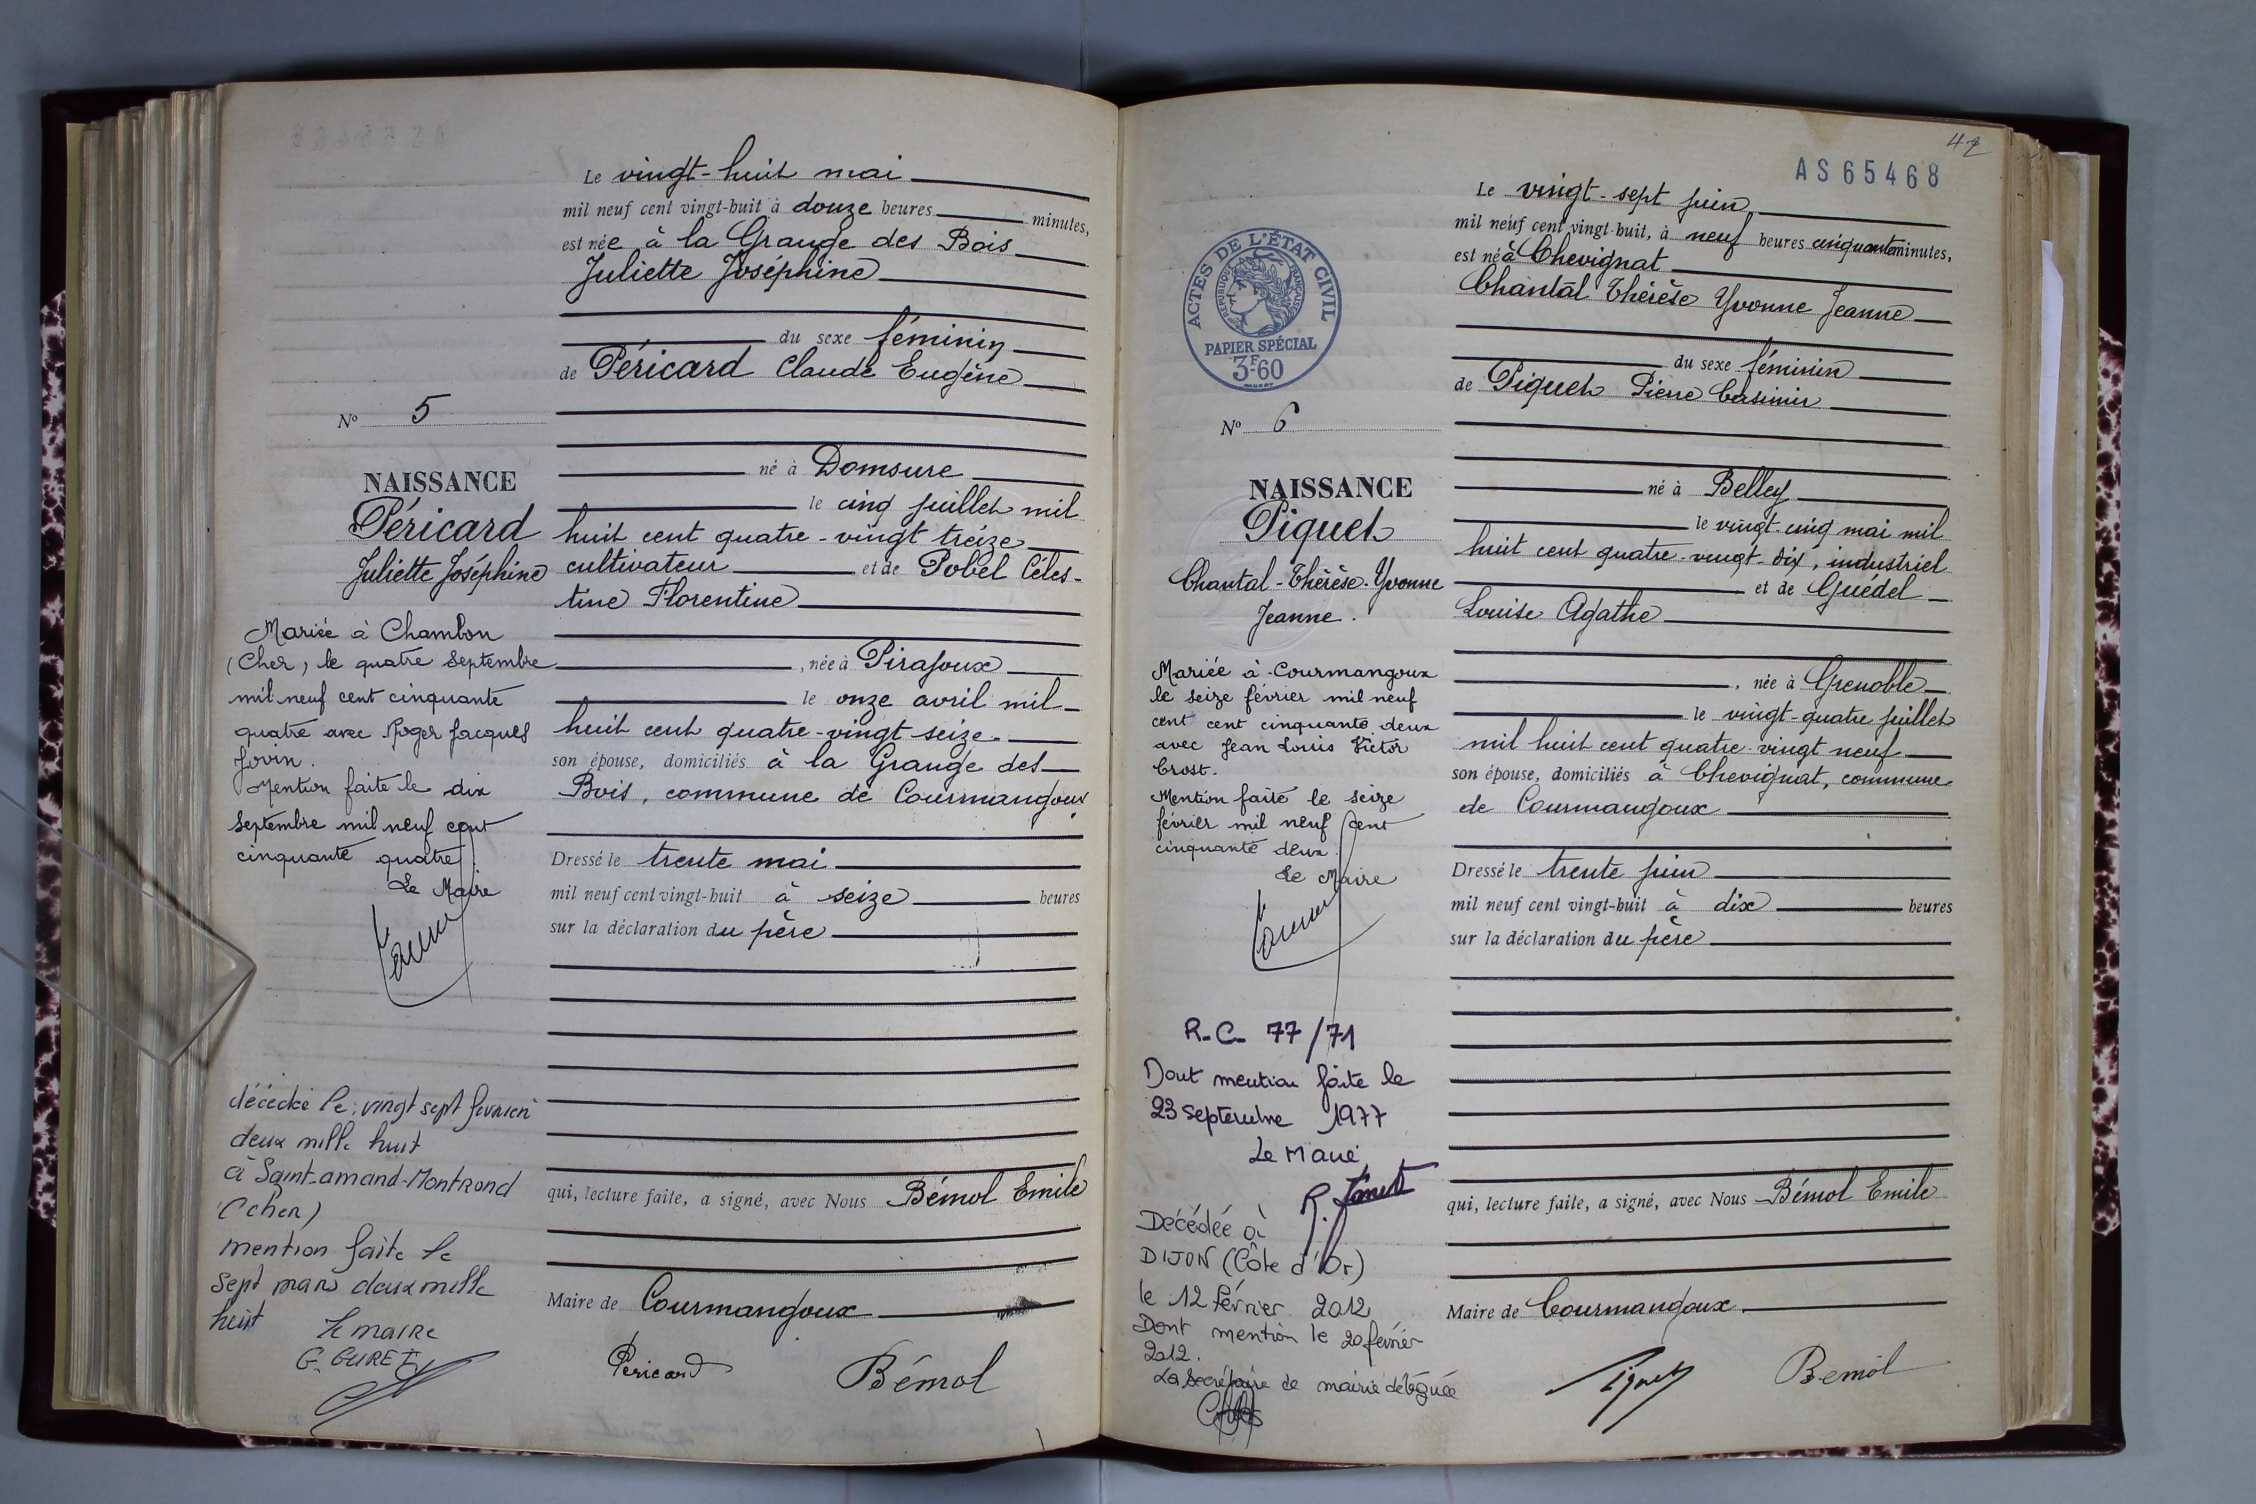 Le vingt-huit mai
mil neuf cent vingt-huit à douze heures minutes,
est née à la Grange des Bois
Juliette Joséphine
du sexe féminin
de Péricard Claude Eugène
né à Domsure
le cinq juillet mil
huit cent quatre-vingt treize
cultivateur et de Pobel Céles-
tine Florentine
, née à Pirajoux
le onze avril mil
huit cent quatre-vingt seize.
son épouse, domiciliés à la Grange des
Bois, commune de Courmangoux
Dressé le trente mai
mil neuf cent vingt-huit à seize heures
sur la déclaration du père
qui, lecture faite, a signé, avec Nous Bémol Emile
Maire de Courmangoux
Péricard Bémol
N° 5
NAISSANCE
Péricard
Juliette Joséphine
Mariée à Chambon
(Cher), le quatre septembre
mil neuf cent cinquante
quatre avec Roger Jacques
Jovin.
Mention faite le dix
septembre mil neuf cent
cinquante quatre.
Le Maire
décédée le vingt sept fevrier
deux mille huit
à Saint-amand-Montrond
(cher)
mention faite le
sept mars deux mille
huit
le maire
42
AS65468
Le vingt-sept juin
mil neuf cent vingt-huit, à neuf heures cinquante minutes,
est né à Chevignat
Chantal Thérèse Yvonne Jeanne
du sexe féminin
de Piquet Pierre Casimir
né à Belley
le vingt-cinq mai mil
huit cent quatre-vingt-dix, industriel
et de Guédel
Louise Agathe
, née à Grenoble
le vingt-quatre juillet
mil huit cent quatre-vingt neuf
son épouse, domiciliés à Chevignat, commune
de Courmangoux
Dressé le trente juin
mil neuf cent vingt-huit à dix heures
sur la déclaration du père
qui, lecture faite, a signé, avec Nous Bémol Emile
Maire de Courmangoux.
Piquet Bémol
ACTES DE L'ÉTAT CIVIL
RÉPUBLIQUE FRANÇAISE
PAPIER SPÉCIAL
3F60
N° 6
NAISSANCE
Piquet
Chantal-Thérèse-Yvonne
Jeanne.
Mariée à Courmangoux
le seize février mil neuf
cent cent cinquante deux
avec Jean Louis Victor
Crost.
Mention faite le seize
février mil neuf cent
cinquante deux.
Le Maire
R-C- 77/71
Dont mention faite le
23 septembre 1977
Le Maire
Décédée à
DIJON (Côte d'Or)
le 12 Février 2012
Dont mention le 20 février
2012.
La Secrétaire de mairie déléguée